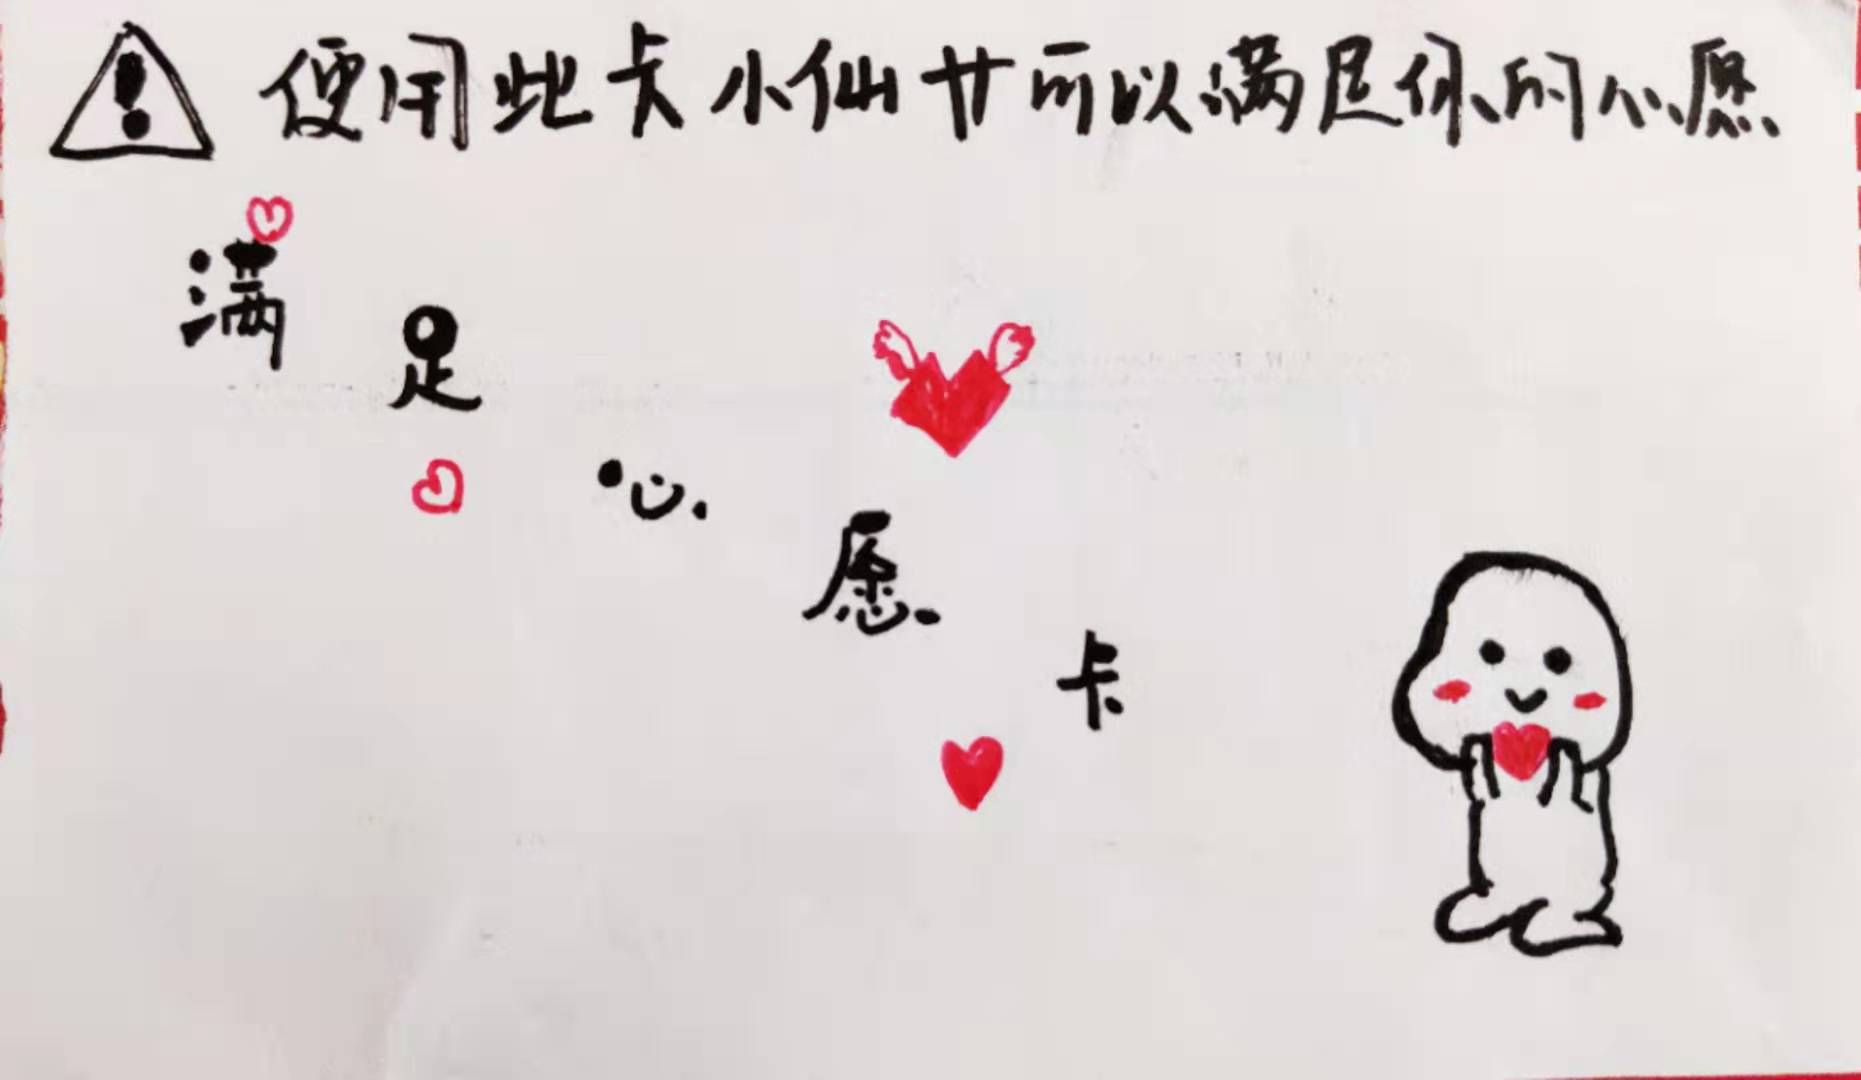 使用此卡小仙女可以满足你的心愿
满足心愿卡